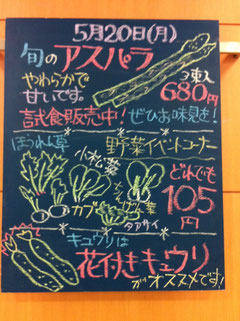 5月20日(月)
旬のアスパラ
やわらかで
甘いです。
3束入
680円
試食販売中！ぜひお味見を！
ほうれん草
野菜イベントコーナー
小松菜
カブ
タアサイ
どれでも
105円
キュウリは
花付きキュウリ
がオススメです！